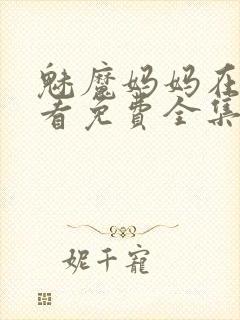 魅魔妈妈在
看免费全集
妮千寵